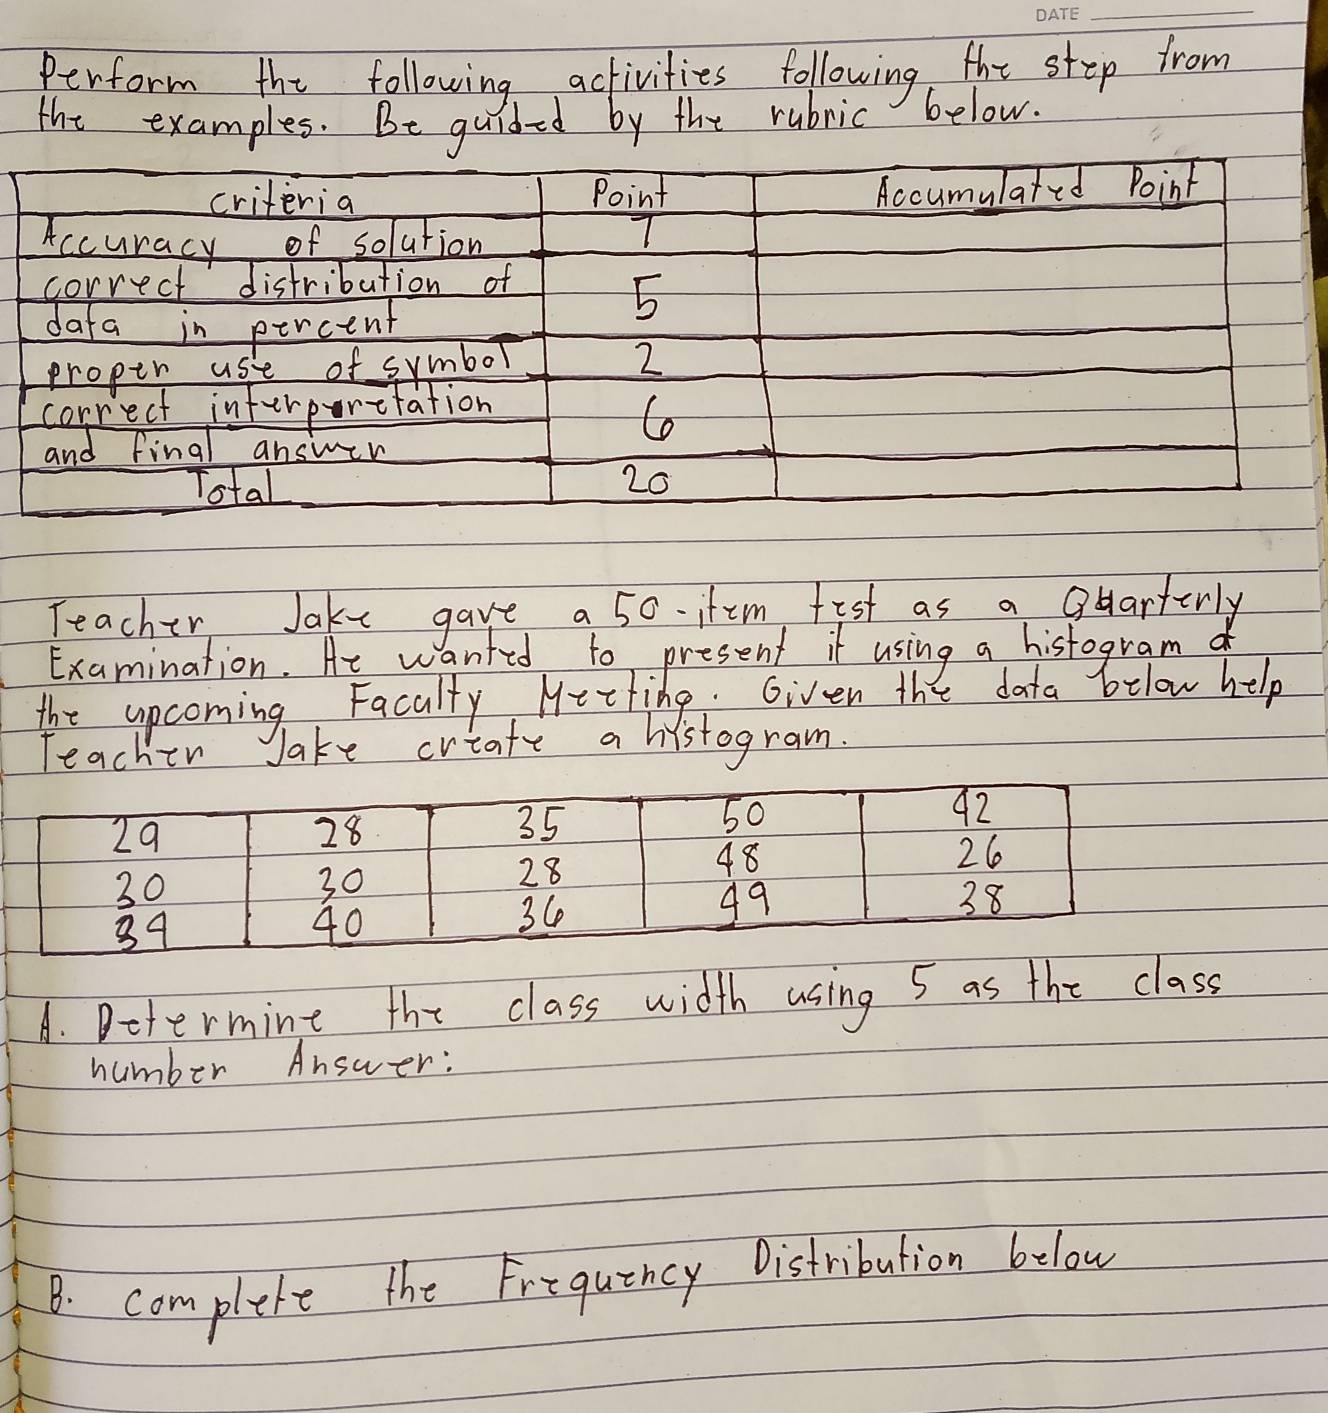 DATE
Perform the following activities following the step from
the examples. Be guided by the rubric below.
criteria Point Accumulated Point
Accuracy of solution 7
correct distribution of
data in percent 5
proper use of symbol 2
correct interpuretation
and final answer 6
Total 20
Teacher Jake gave a 50-item test as a Quarterly
Examination. He wanted to present it using a histogram at
the upcoming Faculty Meeting. Given the data below help
Teacher Jake create a histogram.
29 28 35 50 42
30 30 28 48 26
39 40 36 49 38
A. Determine the class width using 5 as the class
number Answer:
B. complete the Frequency Distribution below